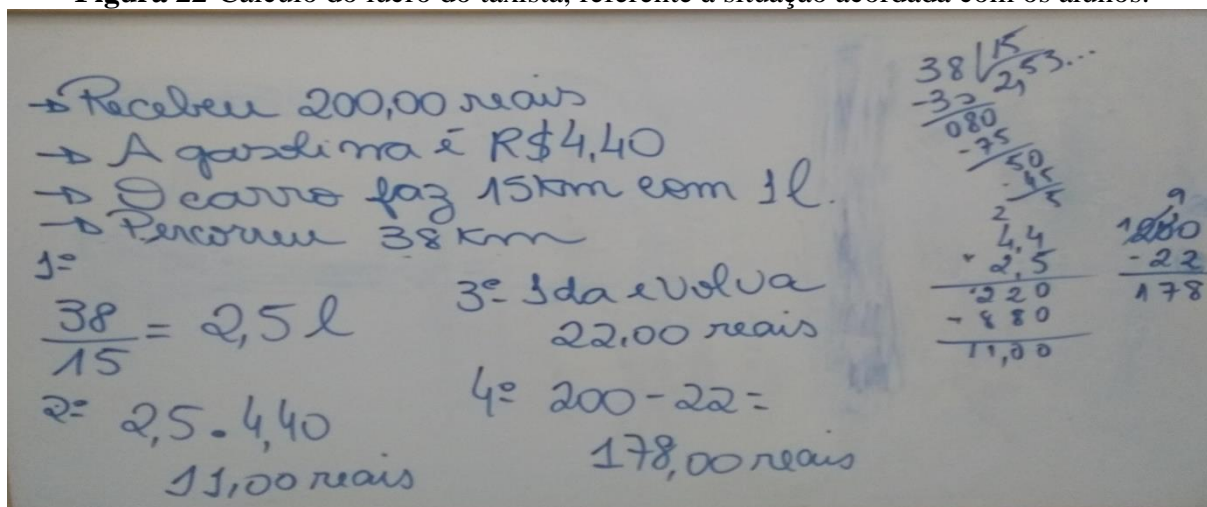 Figura 22 Cálculo do lucro do taxista, referente à situação acordada com os alunos.
→ Recebeu 200,00 reais
→ A gasolina é R$4,40
→ O carro faz 15km com 1l.
→ Percorreu 38 km
1º
38/15 = 2,5 l
2º 2,5 . 4,40
11,00 reais
3º Ida e volva
22,00 reais
4º 200-22=
178,00 reais
38 15
-30 2,53...
080
-75
50
-45
5
2
4,4
2,5
220
880
11,00
200
-22
178